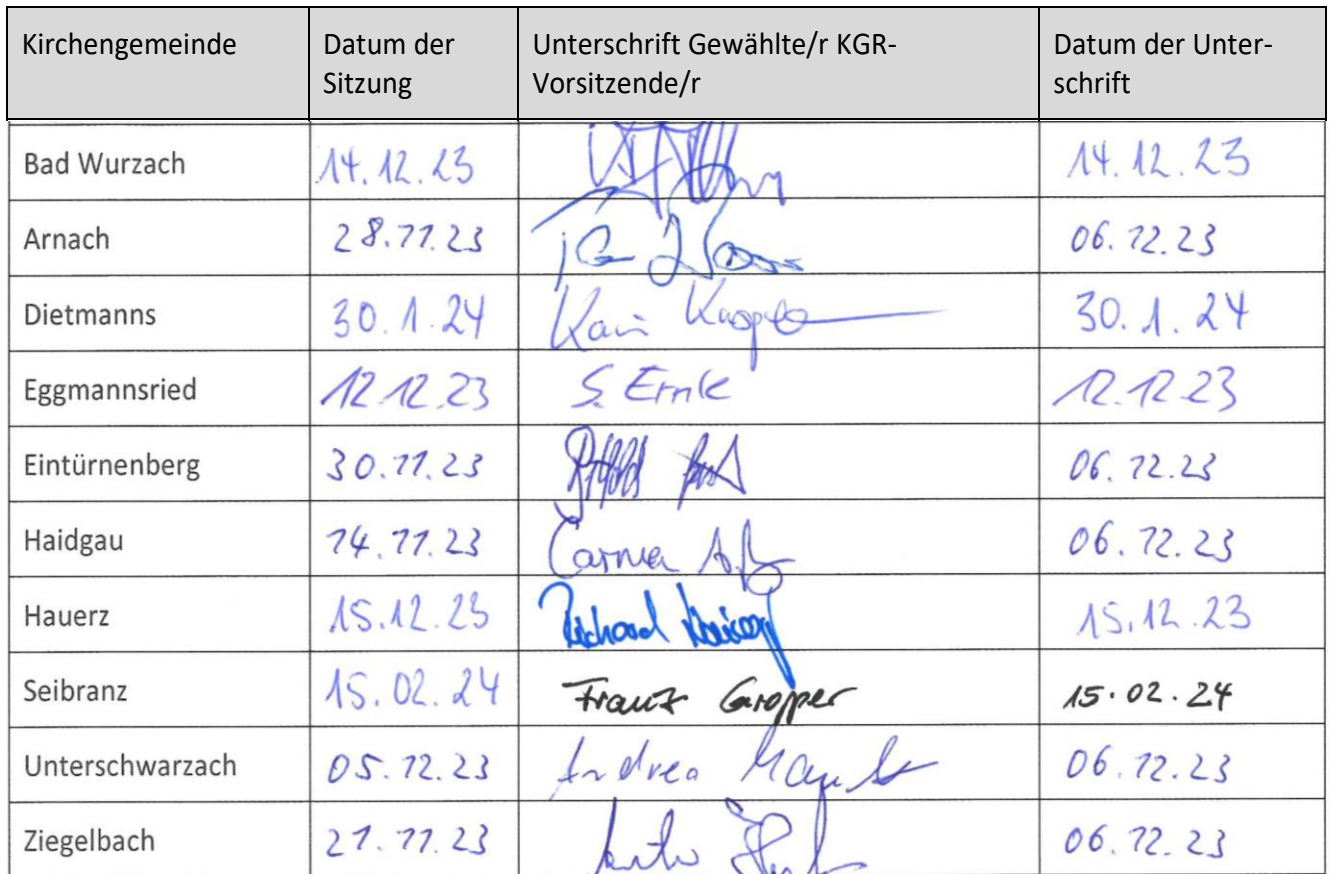 Kirchengemeinde Datum der Sitzung Unterschrift Gewählte/r KGR-Vorsitzende/r Datum der Unter-schrift
Bad Wurzach 14.12.23 14.12.23
Arnach 28.11.23 06.12.23
Dietmanns 30.1.24 30.1.24
Eggmannsried 12.12.23 S. Ernle 12.12.23
Eintürnenberg 30.11.23 06.12.23
Haidgau 14.11.23 06.12.23
Hauerz 15.12.23 Richard 15.12.23
Seibranz 15.02.24 Franz Gropper 15.02.24
Unterschwarzach 05.12.23 Andrea 06.12.23
Ziegelbach 21.11.23 06.12.23